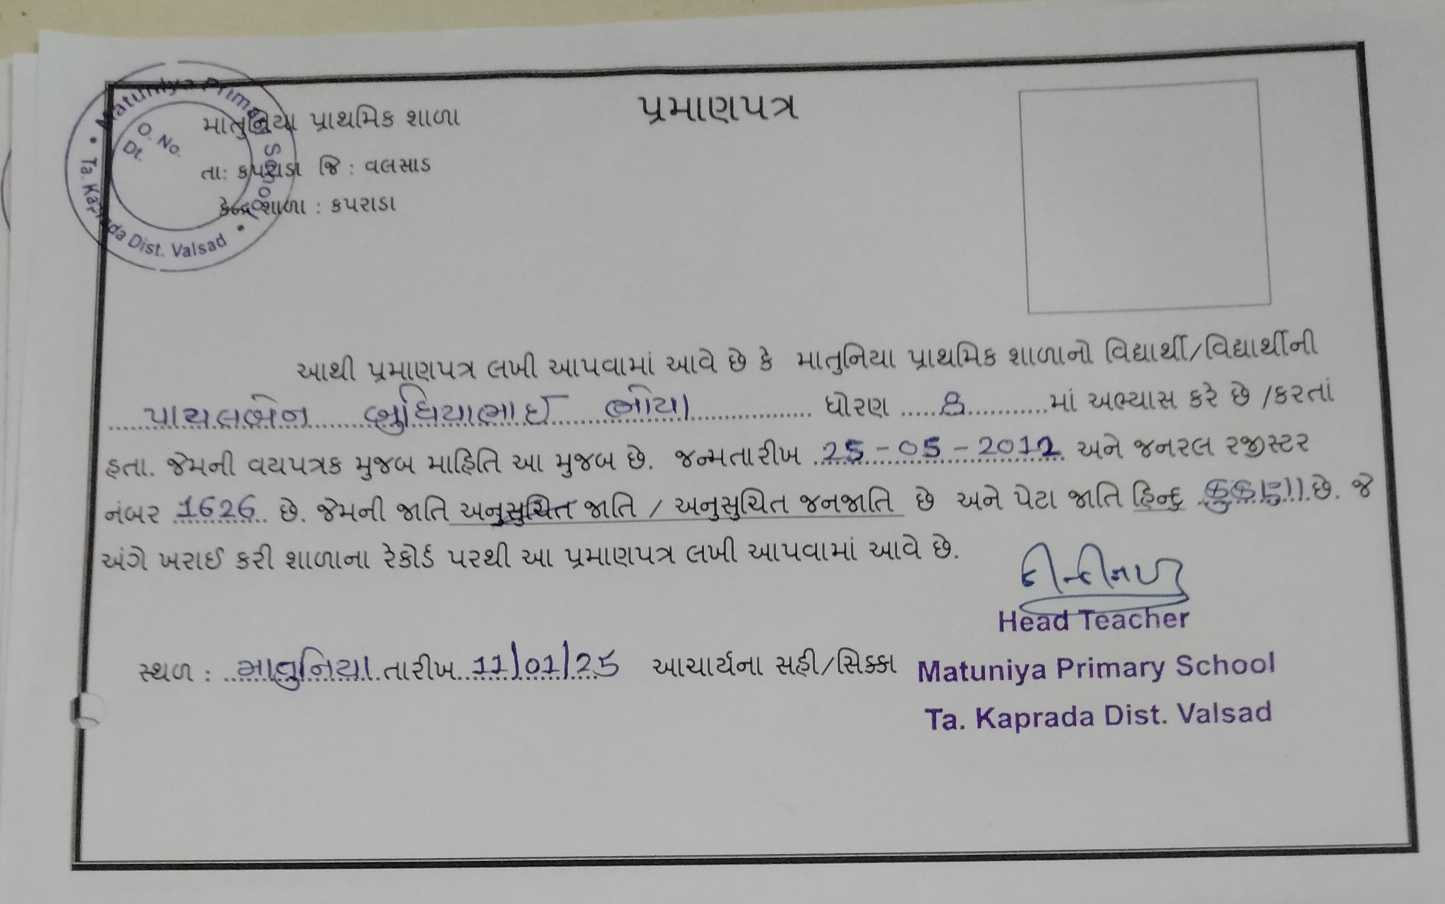 Matuniya Primary School
O. No.
Dt.
• Ta. Kaprada Dist. Valsad •
પ્રમાણપત્ર
માતુનિયા પ્રાથમિક શાળા
તા: કપરાડા જિ : વલસાડ
કેન્દ્રશાળા : કપરાડા
આથી પ્રમાણપત્ર લખી આપવામાં આવે છે કે માતુનિયા પ્રાથમિક શાળાનો વિદ્યાર્થી/વિદ્યાર્થીની
પાયલબેન બુધિયાભાઈ બોયા ધોરણ 8 માં અભ્યાસ કરે છે /કરતાં
હતા. જેમની વયપત્રક મુજબ માહિતિ આ મુજબ છે. જન્મતારીખ 25-05-2012 અને જનરલ રજીસ્ટર
નંબર 1626 છે. જેમની જાતિ અનુસુચિત જાતિ / અનુસુચિત જનજાતિ છે અને પેટા જાતિ હિન્દુ કુકણા છે. જે
અંગે ખરાઈ કરી શાળાના રેકોર્ડ પરથી આ પ્રમાણપત્ર લખી આપવામાં આવે છે.
Head Teacher
સ્થળ : માતુનિયા તારીખ 11/01/25 આચાર્યના સહી/સિક્કા Matuniya Primary School
Ta. Kaprada Dist. Valsad